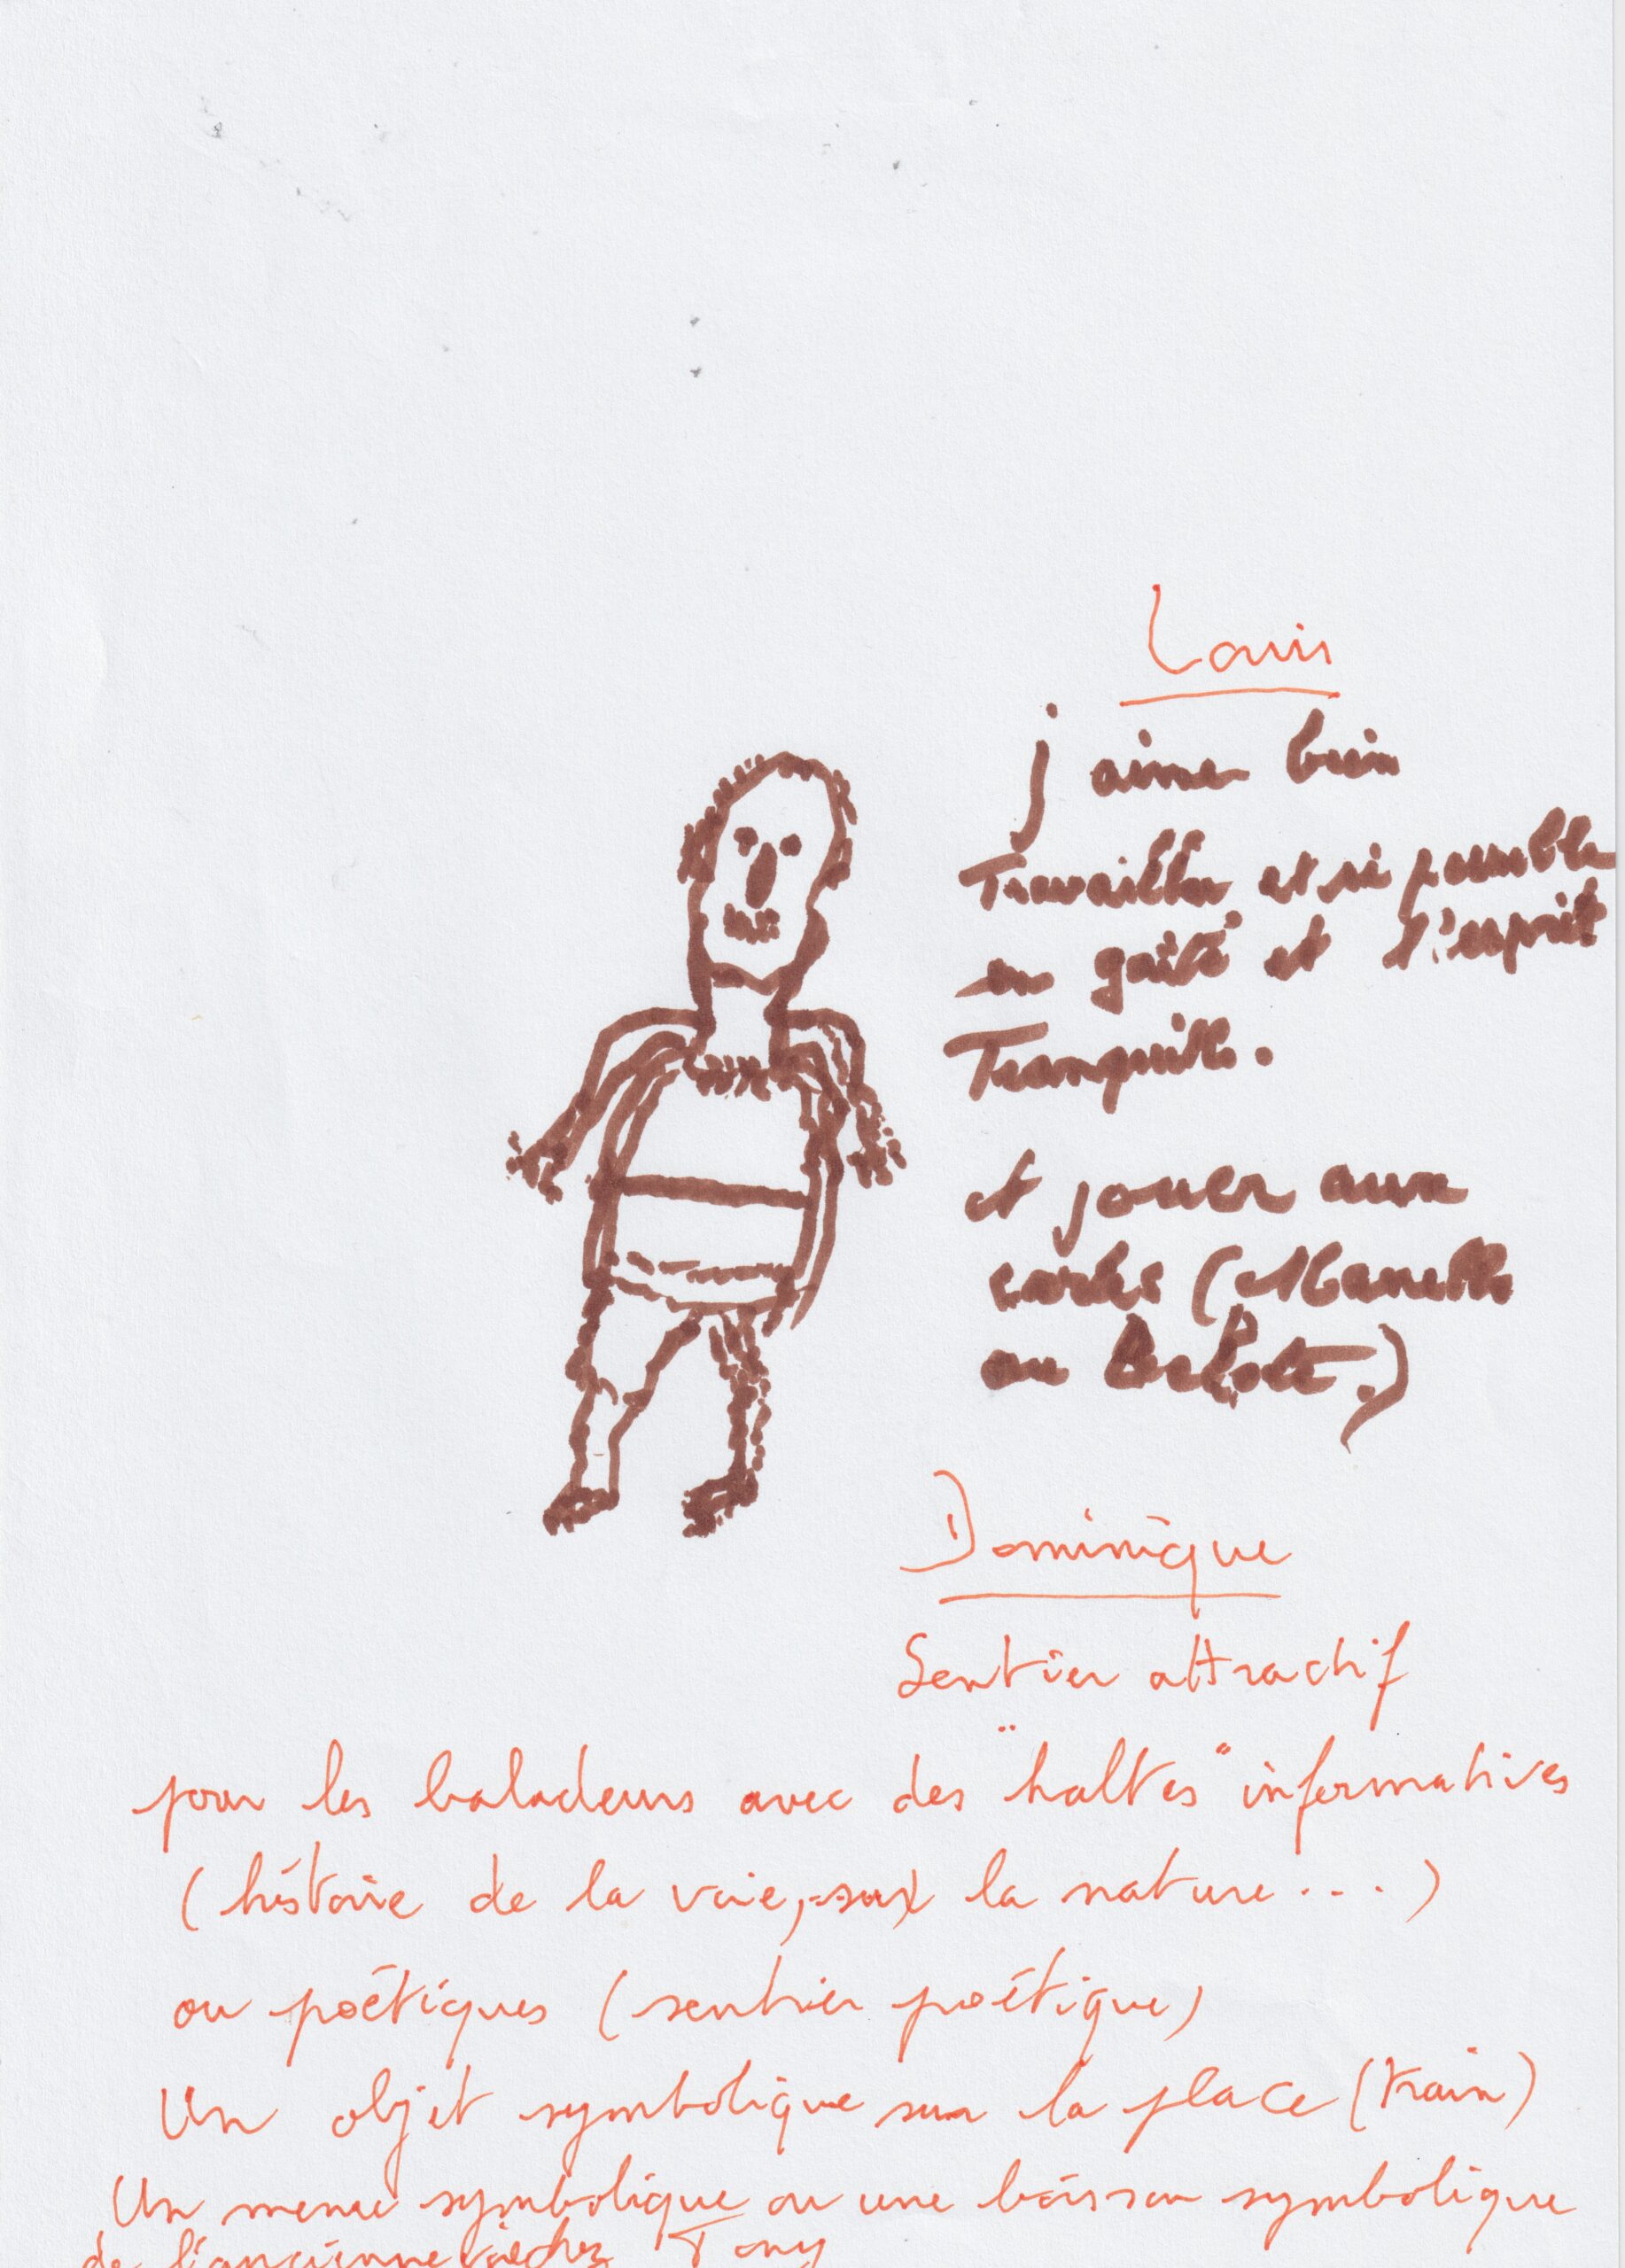 Louis
j'aime bien
Travailler et si possible
en gaîté et l'esprit
Tranquille.
et jouer aux
cartes (Manille
ou Belote.)
Dominique
Sentier attractif
pour les baladeurs avec des "haltes" informatives
(histoire de la voie, sur la nature...)
ou poétiques (sentier poétique)
Un objet symbolique sur la place (train)
Un menu symbolique ou une boisson symbolique
de l'ancienne voie chez Tony